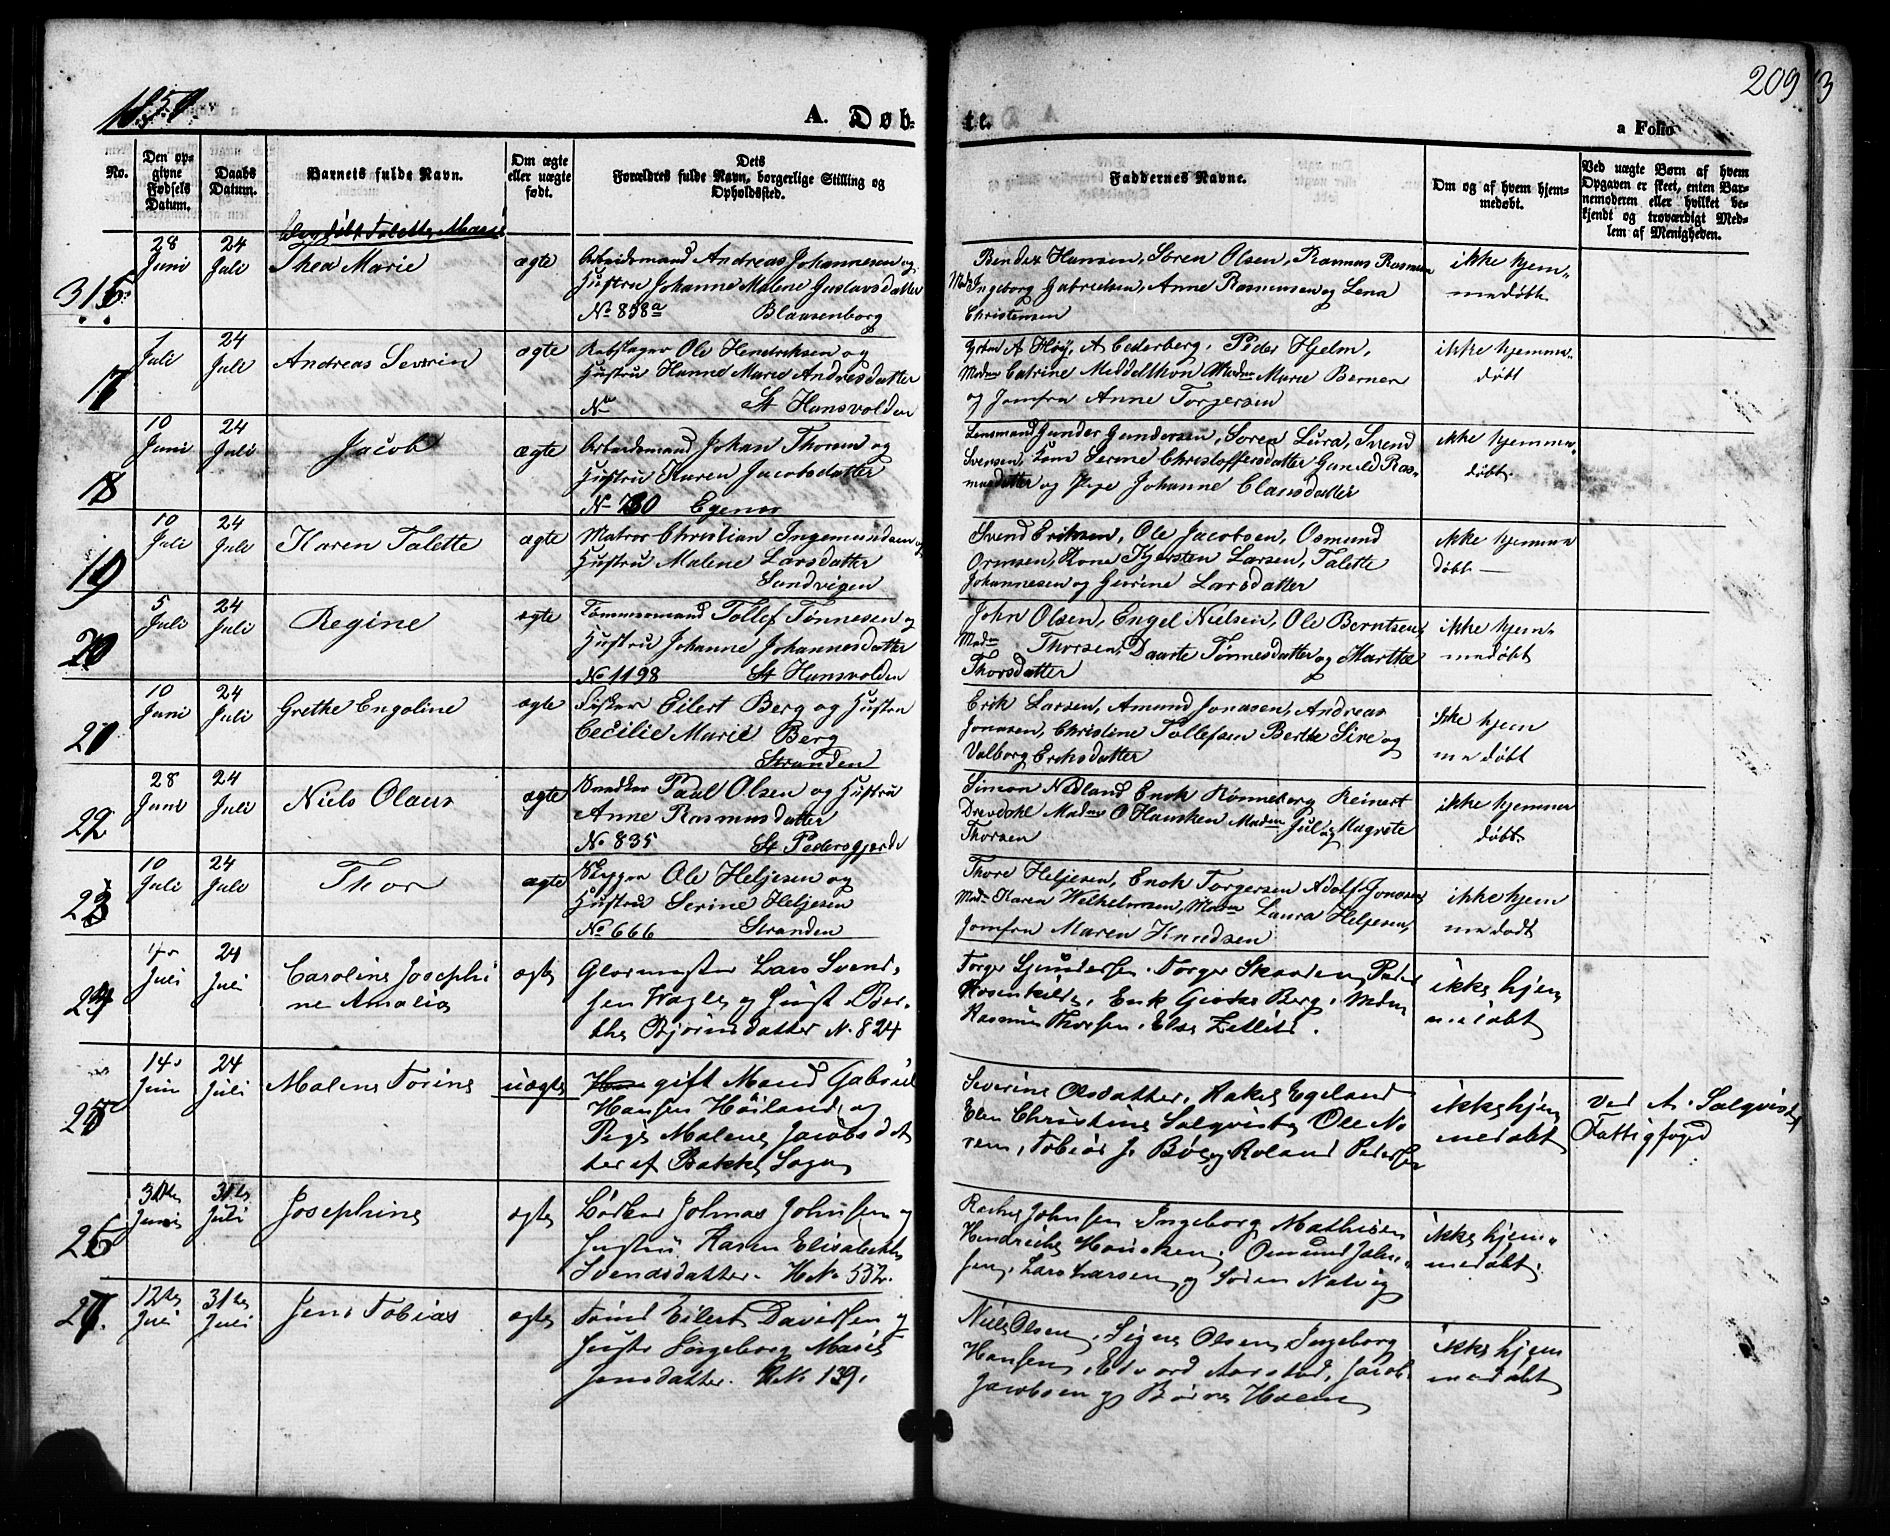 1859.
A. Døb-
te.
209
a Folio
No.
Den op-
givne
Fødsels
Datum.
Daabs
Datum.
Barnets fulde Navn.
Om ægte
eller uægte
født.
Dets
Forældres fulde Navn, borgerlige Stilling og
Opholdssted.
Faddernes Navne.
Om og af hvem hjem-
medøbt.
Ved uægte Børn af hvem
Opgaven er skeet, enten Bar-
nemoderen eller hvilket be-
kjendt og troværdigt Med-
lem af Menigheden.
Talette Marie
28
Juni
24
Juli
Thea Marie
ægte
Arbeidsmand Andreas Johannesen og
Hustru Johanne Malene Gustavsdatter
No 858a Blaasenborg
Hansen, Søren Olsen, Rasmus
Ingeborg Gabrielsen, Anne Rasmusen og Lena
Christensen
ikke hjem-
medøbt
17
1
Juli
24
Juli
Andreas Severin
ægte
Rebslager Ole Hendriksen og
Hustru Hanne Marie Andresdatter
No St Hansvolden
A Høy, A Cederberg, Peder Hjelm,
Madm Catrine Meddelthon Madm Marie Berner
og Jomfru Anne Torgersen
ikke hjemme-
døbt
18
10
Juni
24
Juli
Jacob
ægte
Arbeidsmand Johan Thorsen og
Hustru Karen Jacobsdatter
No 730 Egenes
Lensmand Gunder Gundersen, Søren Lura, Svend
Svensen, Serine Christoffersdatter Gunild Ras-
musdatter og Pige Johanne Clausdatter
ikke hjemme-
døbt
19
10
Juli
24
Juli
Karen Talette
ægte
Matros Christian Ingemundsen og
Hustru Malene Larsdatter
Sandvigen
Svend Eriksen, Ole Jacobsen, Osmund
Ormsen, Kone Kjersten Larsen, Talette
Johannesen og Gurine Larsdatter
ikke hjemme
døbt
20
5
Juli
24
Juli
Regine
ægte
Tømmermand Tollef Tønnesen og
Hustru Johanne Johannesdatter
No 1198 St Hansvolden
John Olsen, Engel Nielsen, Ole Berntsen,
Madm Thorsen, Daarte Tønnesdatter og Marthe
Thorsdatter
ikke hjem-
medøbt
21
10
Juni
24
Juli
Grethe Engoline
ægte
Fisker Eilert Berg og Hustru
Cecilie Marie Berg
Stranden
Erik Larsen, Amund Jonasen, Andreas
Jonasen, Christine Tollefsen Berthe Sire og
Valborg Eriksdatter
ikke hjem
medøbt
22
28
Juni
24
Juli
Niels Olaus
ægte
Snedker Paul Olsen og Hustru
Anne Rasmusdatter
No 835 St Pedersgjerde
Simon Nedland Enok Rønneberg Reinert
Drevdahl Madm O Hausken Madm Juul og Magrete
Thorsen
ikke hjemme
døbt
23
10
Juli
24
Juli
Thor
ægte
Skypper Ole Heljesen og
Hustru Serine Heljesen
No 666 Stranden
Thore Heljesen, Enok Torgersen Adolf Jonasen
Madm Karen Wilhelmsen, Madm Laura Heljesen,
Jomfru Maren Knudsen
ikke hjem
medøbt
24
Juli
24
Juli
Caroline Josephi
ne Amalia
ægte
Glarmester Lars Svend-
sen Wagle og Hust. Ber-
the Bjørnsdatter N. 824
Torger Skaaden, Peder
Rosenkilde, Erik Berg, Mdm
Rasmus Thorsen, Else Zetlitz.
ikke hjem
medøbt
25
14
Juni
24
Juli
Malene Torine
uægte
gift Mand Gabriel
Hansen Høiland, og
Pige Malene Jacobsdat
ter af Bakke Sogn
Severine Olsdatter, Rakel Egeland
Elen Christine Salqvist, Ole No
rem, Tobias J. Bøe og Roland Pedersen
ikke hjem
medøbt
ved A. Salqvist
Fattigfoged
26
30te
Juni
31te
Juli
Josephine
ægte
Bødker Johnsen og
Hustru Karen Elisabeth
Svendsdatter. H No 532.
Johnsen Ingeborg Mathisen
Hendrikke Hausken, Omund John-
sen, Lars Larsen og Søren Natvig
ikke hjem-
medøbt.
27
12te
Juli
31te
Juli
Jens Tobias
ægte
Eilert Davidsen og
Hustr Ingeborg Marie
Jensdatter. H N. 139.
Niels Olsen, Signe Olsen, Ingeborg
Hansen, Edvard Aarstad, Jacob
Jacobsen og
ikke hjem
medøbt